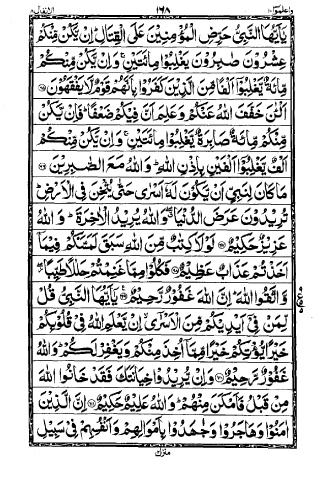 واعلموا ١٠ ١٦٨ الانفال ٨
يٰۤاَيُّهَا النَّبِيُّ حَرِّضِ الْمُؤْمِنِيْنَ عَلَى الْقِتَالِ ؕ اِنْ يَّكُنْ مِّنْكُمْ
عِشْرُوْنَ صٰبِرُوْنَ يَغْلِبُوْا مِائَتَيْنِ ۚ وَاِنْ يَّكُنْ مِّنْكُمْ
مِّائَةٌ يَّغْلِبُوْۤا اَلْفًا مِّنَ الَّذِيْنَ كَفَرُوْا بِاَنَّهُمْ قَوْمٌ لَّا يَفْقَهُوْنَ ﴿٦٥﴾
اَلْـٰٔنَ خَفَّفَ اللّٰهُ عَنْكُمْ وَعَلِمَ اَنَّ فِيْكُمْ ضَعْفًا ؕ فَاِنْ يَّكُنْ
مِّنْكُمْ مِّائَةٌ صَابِرَةٌ يَّغْلِبُوْا مِائَتَيْنِ ۚ وَاِنْ يَّكُنْ مِّنْكُمْ
اَلْفٌ يَّغْلِبُوْۤا اَلْفَيْنِ بِاِذْنِ اللّٰهِ ؕ وَاللّٰهُ مَعَ الصّٰبِرِيْنَ ﴿٦٦﴾
مَا كَانَ لِنَبِيٍّ اَنْ يَّكُوْنَ لَهٗۤ اَسْرٰى حَتّٰى يُثْخِنَ فِى الْاَرْضِ ؕ
تُرِيْدُوْنَ عَرَضَ الدُّنْيَا ۖ وَاللّٰهُ يُرِيْدُ الْاٰخِرَةَ ؕ وَاللّٰهُ
عَزِيْزٌ حَكِيْمٌ ﴿٦٧﴾ لَوْلَا كِتٰبٌ مِّنَ اللّٰهِ سَبَقَ لَمَسَّكُمْ فِيْمَاۤ
اَخَذْتُمْ عَذَابٌ عَظِيْمٌ ﴿٦٨﴾ فَكُلُوْا مِمَّا غَنِمْتُمْ حَلٰلًا طَيِّبًا ۖ
وَّاتَّقُوا اللّٰهَ ؕ اِنَّ اللّٰهَ غَفُوْرٌ رَّحِيْمٌ ﴿٦٩﴾ يٰۤاَيُّهَا النَّبِيُّ قُلْ
لِّمَنْ فِيْۤ اَيْدِيْكُمْ مِّنَ الْاَسْرٰۤى ۙ اِنْ يَّعْلَمِ اللّٰهُ فِيْ قُلُوْبِكُمْ
خَيْرًا يُّؤْتِكُمْ خَيْرًا مِّمَّاۤ اُخِذَ مِنْكُمْ وَيَغْفِرْ لَكُمْ ؕ وَاللّٰهُ
غَفُوْرٌ رَّحِيْمٌ ﴿٧٠﴾ وَاِنْ يُّرِيْدُوْا خِيَانَتَكَ فَقَدْ خَانُوا اللّٰهَ
مِنْ قَبْلُ فَاَمْكَنَ مِنْهُمْ ؕ وَاللّٰهُ عَلِيْمٌ حَكِيْمٌ ﴿٧١﴾ اِنَّ الَّذِيْنَ
اٰمَنُوْا وَهَاجَرُوْا وَجٰهَدُوْا بِاَمْوَالِهِمْ وَاَنْفُسِهِمْ فِيْ سَبِيْلِ
منزل٢